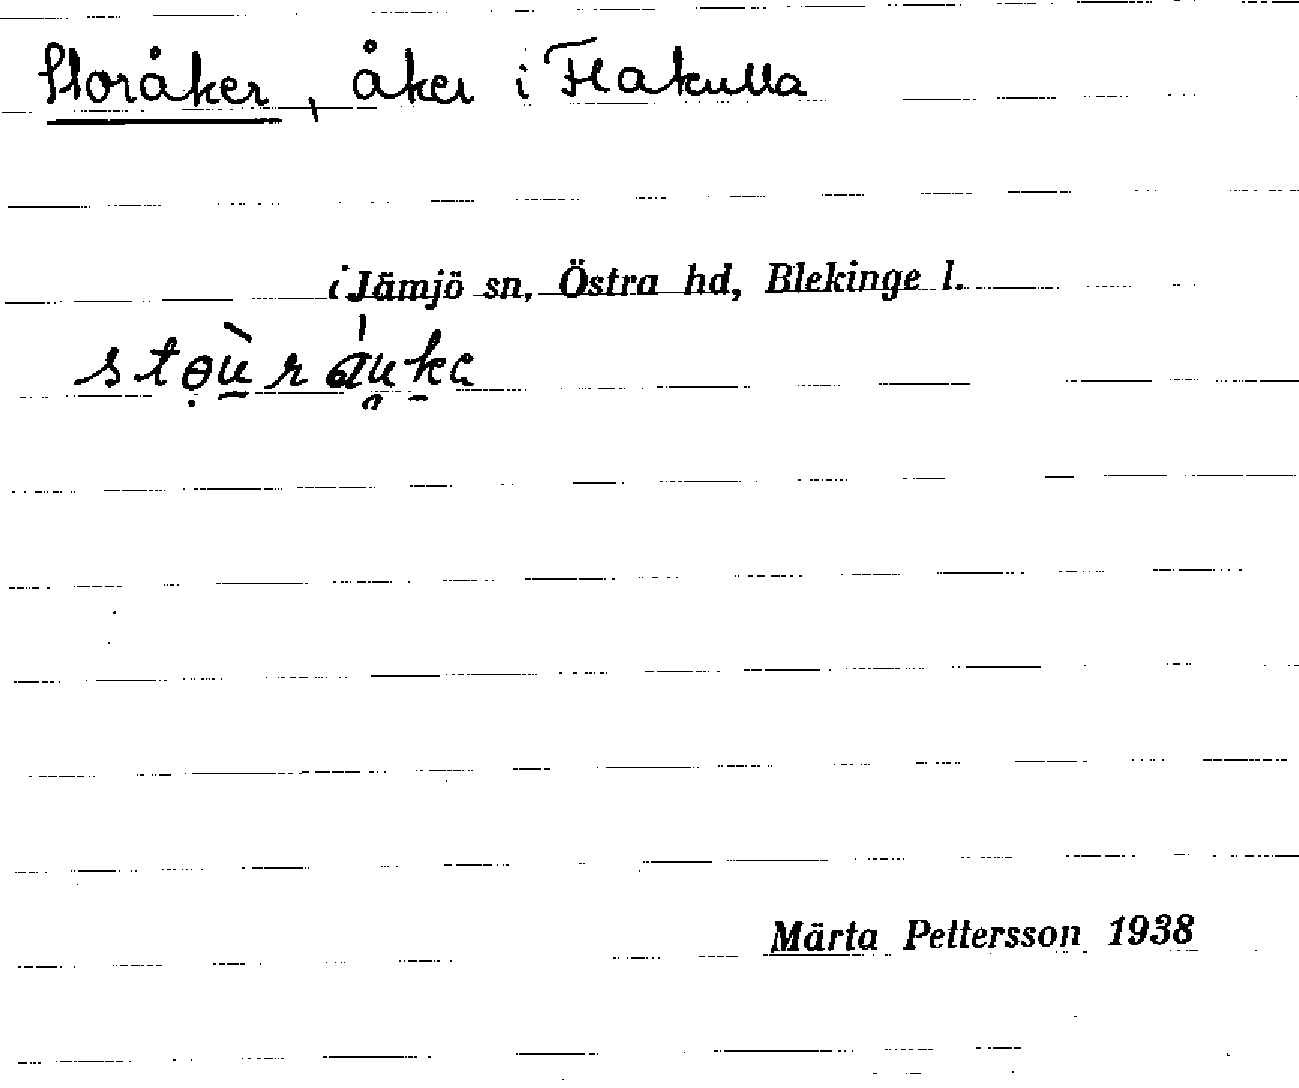 Storåker, åker i Flakulla
i Jämjö sn, Östra hd, Blekinge l.
Märta Pettersson 1938